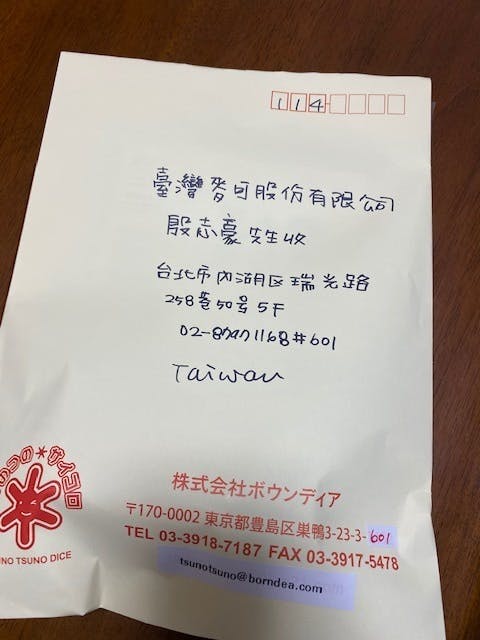 114
臺灣麥可股份有限公司
殷志豪 先生收
台北市內湖区瑞光路
258巷50号5F
#601
Taiwan
つの*サイコロ
UNO TSUNO DICE
株式会社ボウンディア
〒170-0002 東京都豊島区巣鴨3-23-3-601
TEL 03-3918-7187 FAX 03-3917-5478
tsunotsuno@borndea.com